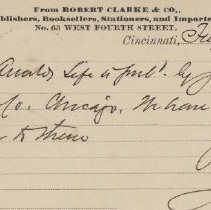 From ROBERT CLARKE & CO.,
Publishers, Booksellers, Stationers, and Importe
No. 65 WEST FOURTH STREET.
Cincinnati,
Arnold's Life is publ. by
Co. Chicago. We have